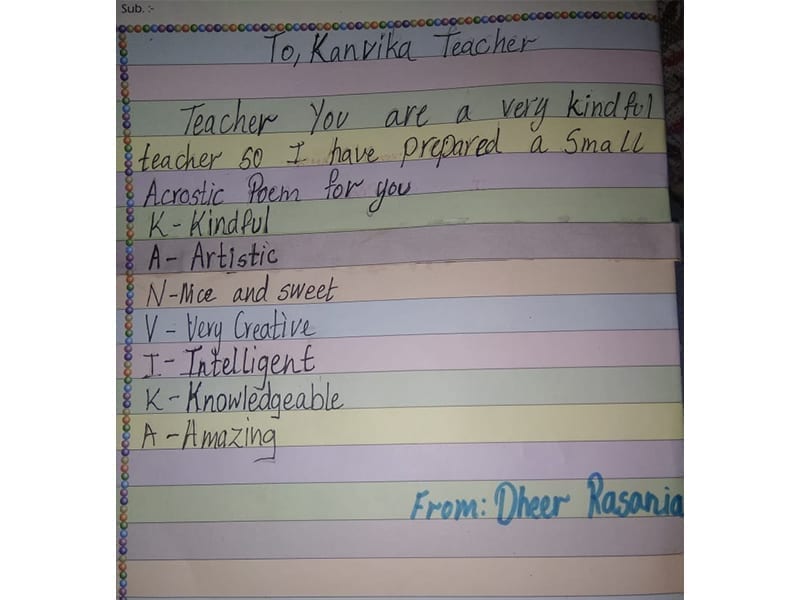 Sub. :-
To, Kanvika Teacher
Teacher You are a very kindful
teacher so I have prepared a Small
Acrostic Poem for you
K - Kindful
A - Artistic
N - Nice and sweet
V - Very Creative
I - Intelligent
K - Knowledgeable
A - Amazing
From: Dheer Rasania